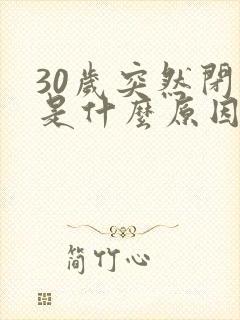 30歲突然閉
是什麼原因
簡竹心